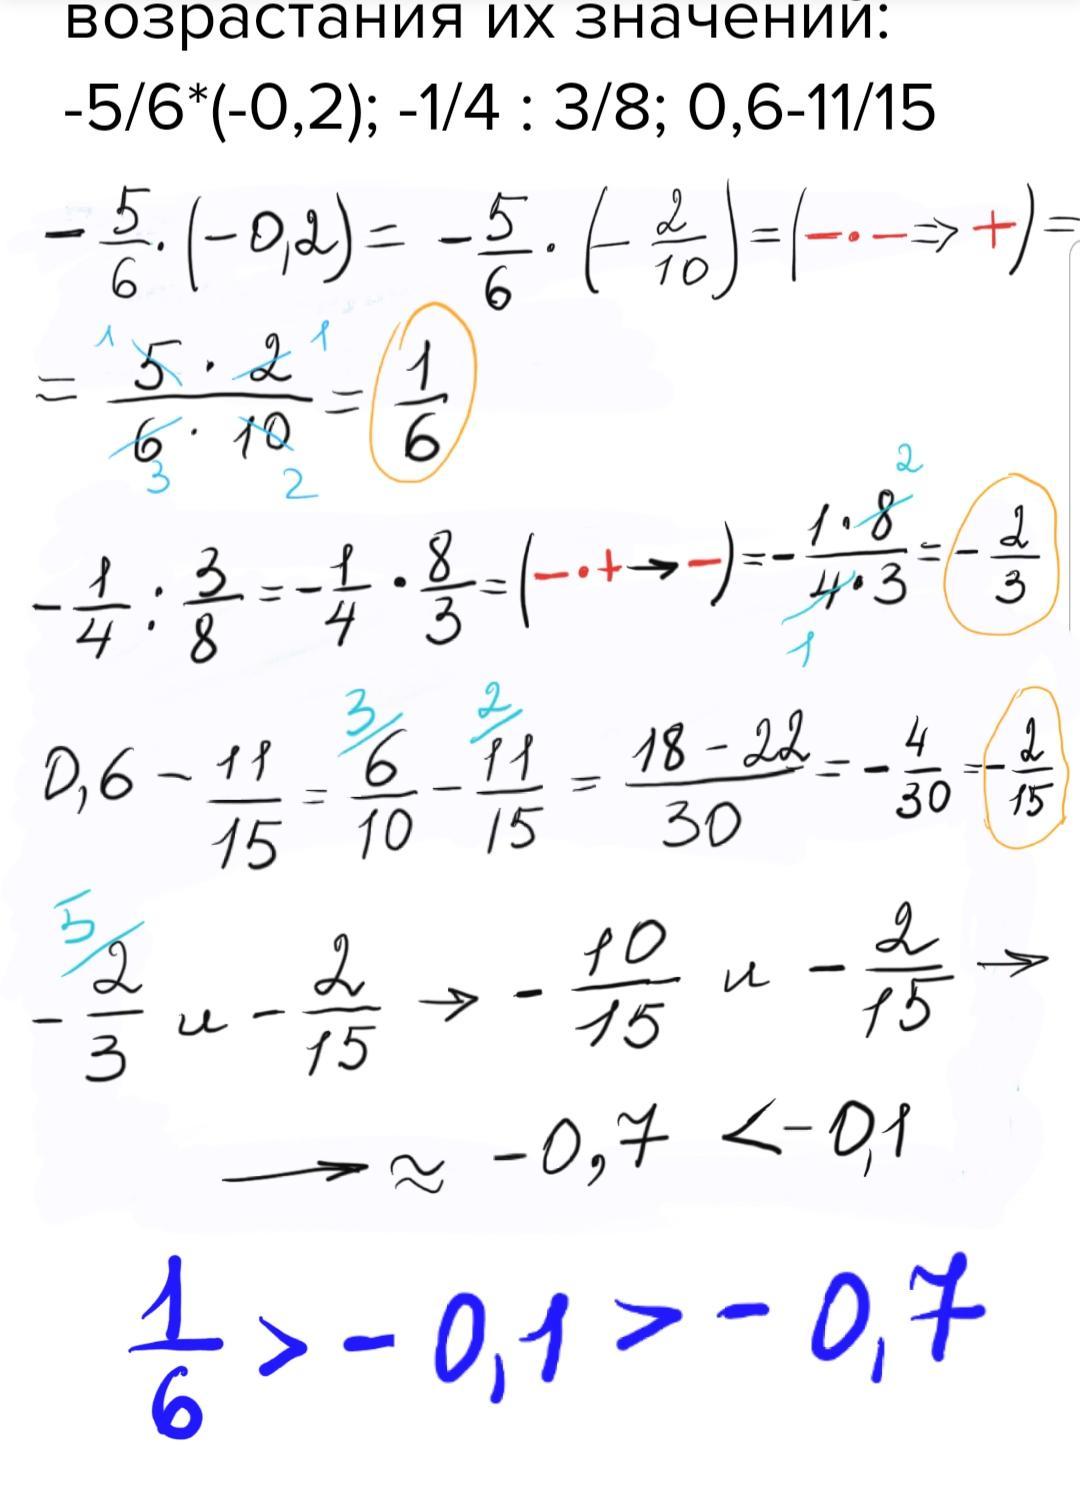 возрастания их значений:
-5/6*(-0,2); -1/4 : 3/8; 0,6-11/15
- 5/6 · (-0,2) = - 5/6 · (- 2/10) = (- · - ⇒ +) =
= 5 · 2 / 6 · 10 = 1/6
1 1 3 2
- 1/4 : 3/8 = - 1/4 · 8/3 = (- · + → -) = - 1 · 8 / 4 · 3 = - 2/3
2 1
0,6 - 11/15 = 6/10 - 11/15 = 18 - 22 / 30 = - 4/30 = - 2/15
3 2
- 2/3 и - 2/15 → - 10/15 и - 2/15 →
5
→ ≈ -0,7 < -0,1
1/6 > -0,1 > -0,7